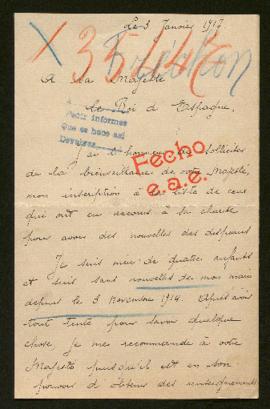 Le 3 Janvier 1917
35/146
A Sa Majesté
Le Roi d'Espagne,
Pedir informes
Que se hace así
J'ai l'honneur de solliciter
de la bienveillance de votre Majesté,
mon inscription à la liste de ceux
qui ont eu recours à la charité
pour avoir des nouvelles des disparus
Fecho
e.a.e.
Je suis mère de quatre enfants
et suis sans nouvelles de mon mari
depuis le 3 Novembre 1914. Après avoir
tout tenté pour savoir quelque
chose je me recommande à votre
Majesté puisqu'il est en son
pouvoir d'obtenir des renseignements